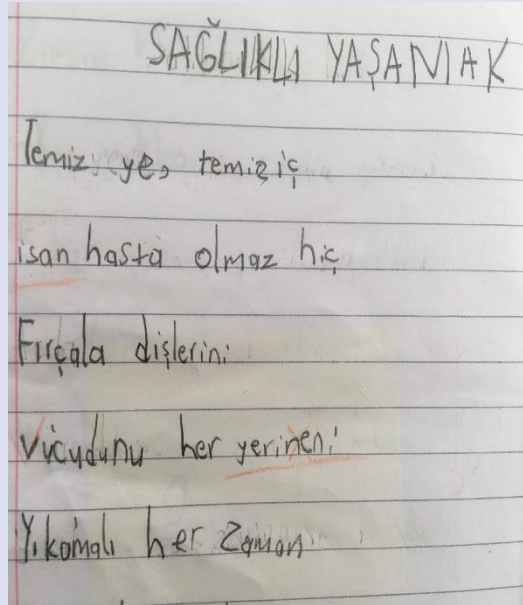 SAĞLIKLI YAŞAMAK
Temiz ye, temiz iç
isan hasta olmaz hiç
Fırçala dişlerini
Vücudunu her yerineni
Yıkamalı her zaman